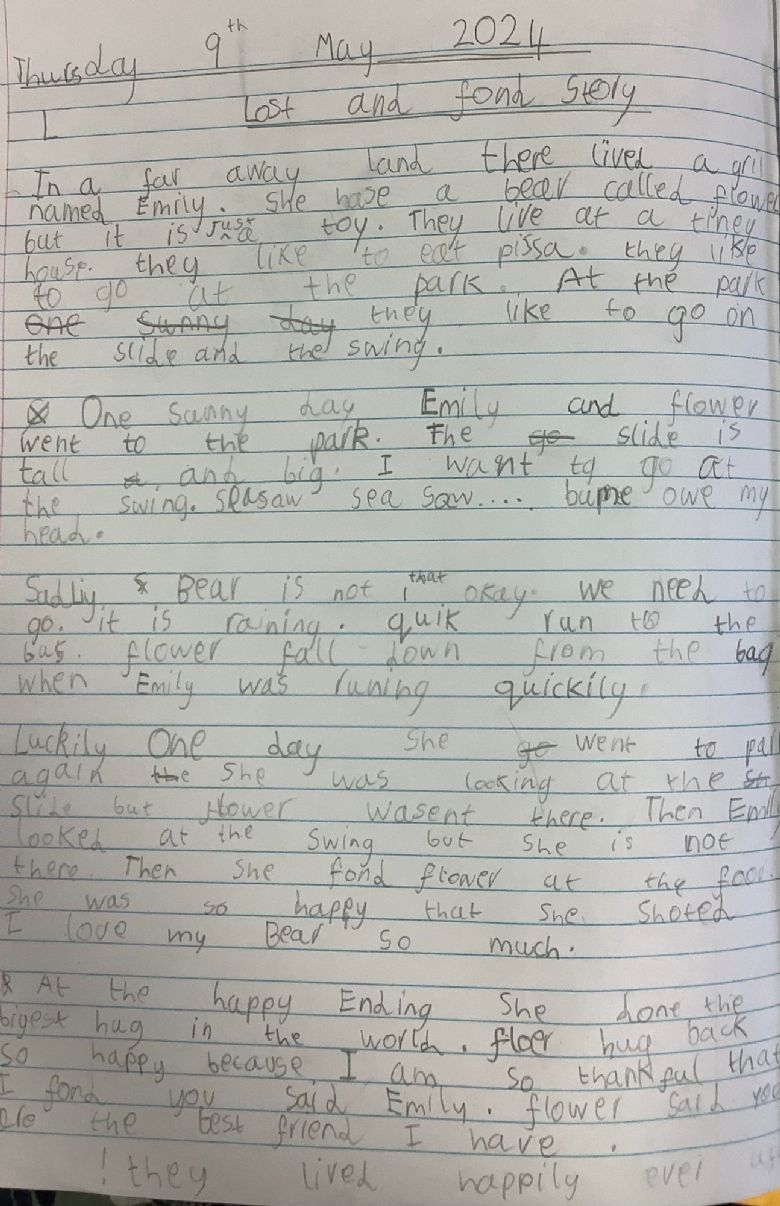 Thursday 9th May 2024
L Lost and fond Story
In a far away land there lived a gril
named Emily. She hase a bear called flower
but it is just a toy. They live at a tiney
house. they like to eat pissa. they like
to go at the park. At the park
one sunny day they like to go on
the slide and the swing.
One sunny day Emily and flower
went to the park. The go slide is
tall and big. I want to go at
the swing. seasaw sea saw.... bume owe my
head.
Sadliy Bear is not that okay. we need to
go. it is raining. quik run to the
bus. flower fall down from the bag
when Emily was runing quickily.
Luckily One day she go went to
again the she was looking at the
Slide but flower wasent there. Then Emily
looked at the swing but she is not
there. Then she fond flower at the
she was so happy that she shoted
I love my Bear so much.
At the happy Ending she done the
bigest hug in the world. floer hug back
so happy because I am so thankful that
I fond you said Emily. flower said you
are the best friend I have .
! they lived happily ever